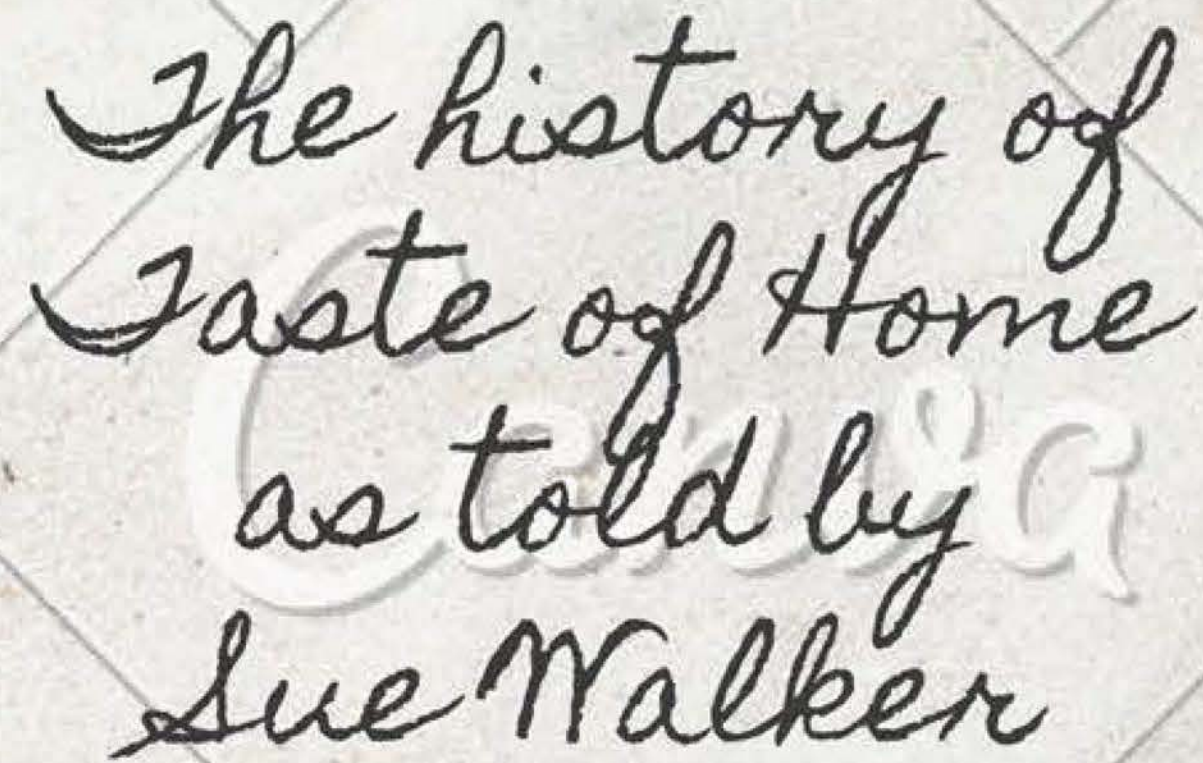 The history of
Taste of Home
as told by
Sue Walker
Canva